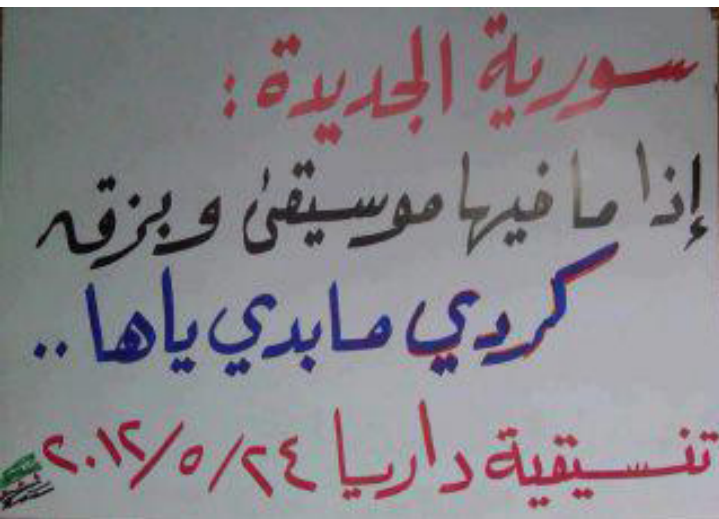 سورية الجديدة :
إذا ما فيها موسيقى وبزق
كردي ما بدي ياها ..
تنسيقية داريا ٢٠١٢/٥/٢٤